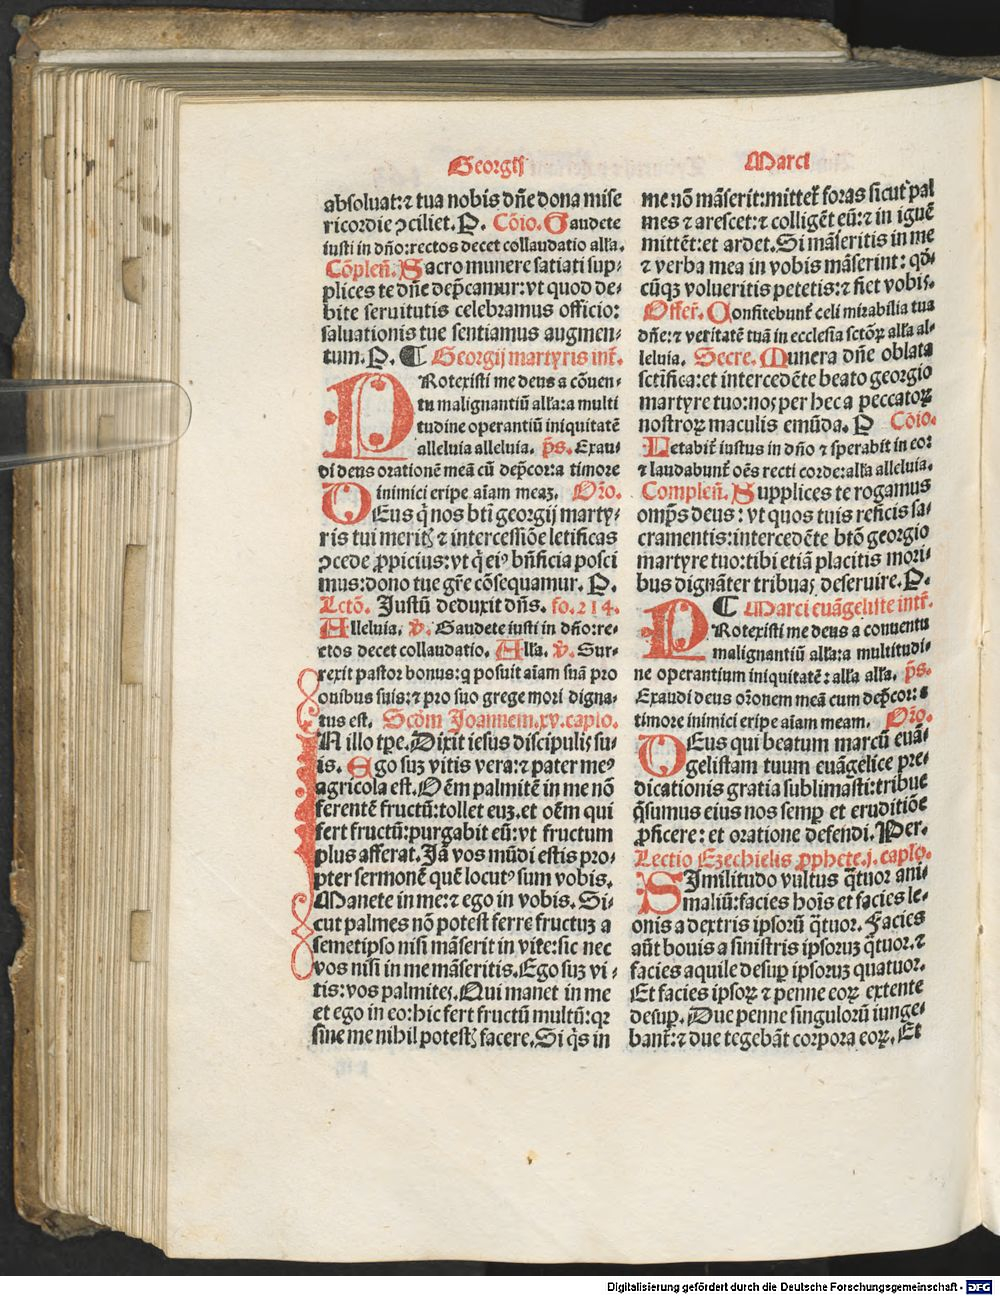 Georgij
Marci
absoluat: ⁊ tua nobis dn̄e dona mise
ricordie ꝯciliet. P. Cōio. Gaudete
iusti in dn̄o: rectos decet collaudatio alĺa.
Cōplen̄. Sacro munere satiati sup⸗
plices te dn̄e dep̄camur: vt quod de⸗
bite seruitutis celebramus officio:
saluationis tue sentiamus augmen⸗
tum. P. ¶ Georgij martyris int̄.
PRotexisti me deus a cōuen⸗
tu malignantiū alĺa: a multi
tudine operantiū iniquitatē
alleluia alleluia. p̄s. Exau⸗
di deus orationē meā cū dep̄cor: a timore
inimici eripe aīam meaꝫ. Or̄o.
DEus q̄ nos btī georgij marty⸗
ris tui meritꝭ ⁊ intercessiōe letificas
ꝯcede ꝓpicius: vt q̄ eiꝰ bn̄ficia posci
mus: dono tue gr̄e cōsequamur. P.
Lctō. Justū deduxit dn̄s. fo. 214.
Alleluia. v̄. Gaudete iusti in dn̄o: re⸗
ctos decet collaudatio. Alĺa. v̄. Sur⸗
rexit pastor bonus: q posuit aīam suā pro
ouibus suis: ⁊ pro suo grege mori digna⸗
tus est. Scd̄m Joannem. xv. caplo.
IN illo tp̄e. Dixit iesus discipulis su⸗
is. Ego suꝫ vitis vera: ⁊ pater meꝰ
agricola est. Oēm palmitē in me nō
ferentē fructū: tollet euꝫ. et oēm qui
fert fructū: purgabit eū: vt fructum
plus afferat. Jā vos mūdi estis pro⸗
pter sermonē quē locutꝰ sum vobis.
Manete in me: ⁊ ego in vobis. Si⸗
cut palmes nō potest ferre fructuꝫ a
semetipso nisi māserit in vite: sic nec
vos nisi in me māseritis. Ego suꝫ vi⸗
tis: vos palmites. Qui manet in me
et ego in eo: hic fert fructū multū: qꝛ
sine me nihil potestꝭ facere. Si q̄s in
me nō māserit: mittet̄ foras sicut pal
mes ⁊ arescet: ⁊ colligēt eū: ⁊ in iguē
mittēt: et ardet. Si māseritis in me
⁊ verba mea in vobis māserint: qd̄
cūqꝫ volueritis petetis: ⁊ fiet vobis.
Offer̄. Confitebunt̄ celi mirabilia tua
dn̄e: ⁊ veritatē tuā in ecclesia sctōꝝ alĺa al⸗
leluia. Secre. Munera dn̄e oblata
sctīfica: et intercedēte beato georgio
martyre tuo: nos per hec a peccatoꝝ
nostroꝝ maculis emūda. P Cōio.
Letabit̄ iustus in dn̄o ⁊ sperabit in eo:
⁊ laudabunt̄ oēs recti corde: alĺa alleluia.
Complen̄. Supplices te rogamus
omp̄s deus: vt quos tuis reficis sa⸗
cramentis: intercedēte btō georgio
martyre tuo: tibi etiā placitis mori⸗
bus dignāter tribuas deseruire. P.
¶ Marci euāgeliste intr̄.
PRotexisti me deus a conuentu
malignantiū alĺa: a multitudi⸗
ne operantium iniquitatē: alĺa alĺa. p̄s.
Exaudi deus or̄onem meā cum dep̄cor: a
timore inimici eripe aīam meam. Or̄o.
DEus qui beatum marcū euā⸗
gelistam tuum euāgelice pre⸗
dicationis gratia sublimasti: tribue
q̄sumus eius nos semꝑ et eruditiōe
ꝓficere: et oratione defendi. Per.
Lectio Ezechielis ꝓphete. j. caplo.
SImilitudo vultus q̄tuor ani⸗
maliū: facies hoīs et facies le⸗
onis a dextris ipsorū q̄tuor. Facies
aūt bouis a sinistris ipsoruꝫ q̄tuor. ⁊
facies aquile desuꝑ ipsoruꝫ quatuor.
Et facies ipsoꝝ ⁊ penne eoꝝ extente
desuꝑ. Due penne singulorū iunge⸗
bant̄: ⁊ due tegebāt corpora eoꝝ. Et
Digitalisierung gefördert durch die Deutsche Forschungsgemeinschaft - DFG